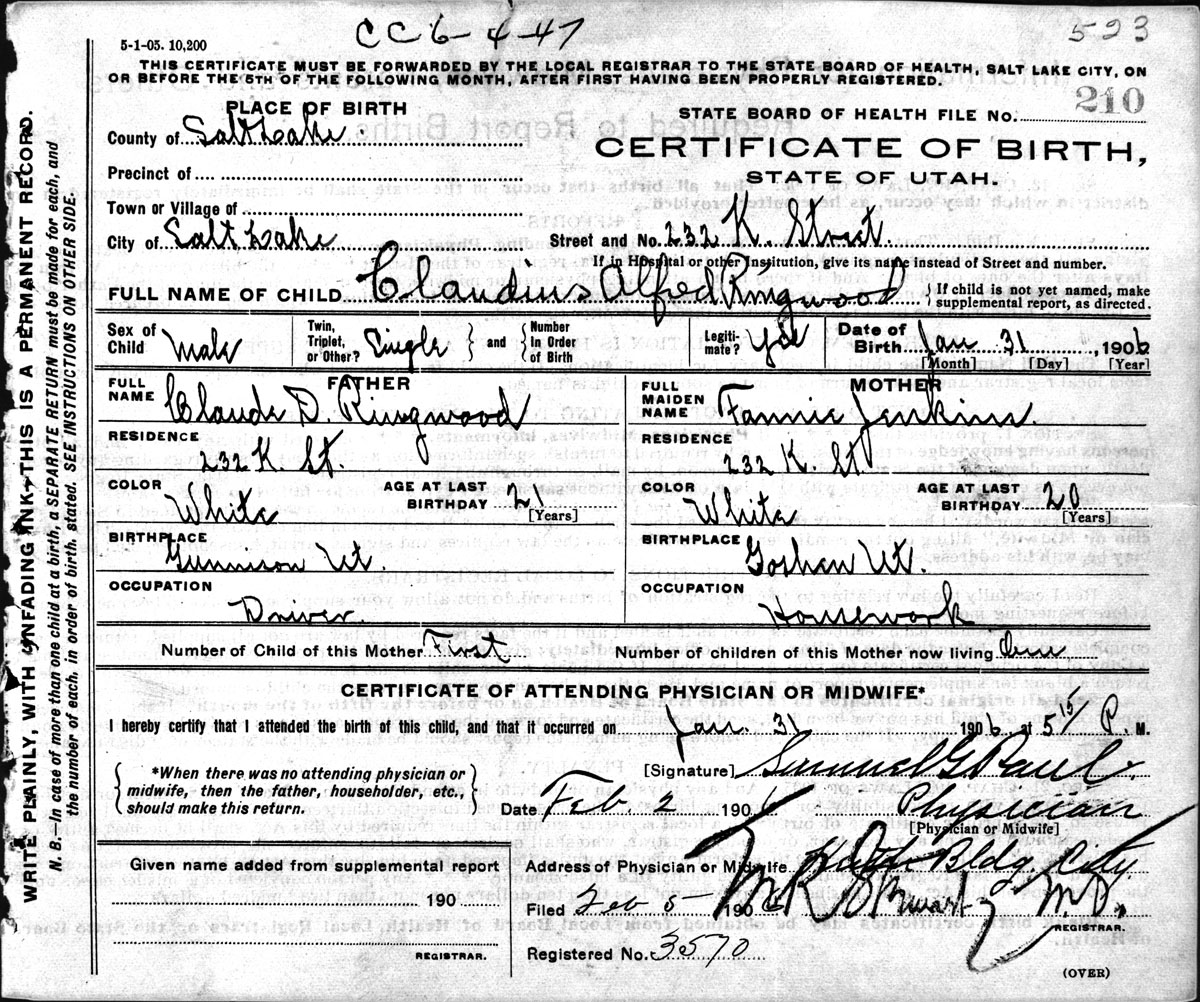 CC6-4-47
523
5-1-05. 10,200
THIS CERTIFICATE MUST BE FORWARDED BY THE LOCAL REGISTRAR TO THE STATE BOARD OF HEALTH, SALT LAKE CITY, ON
OR BEFORE THE 5TH OF THE FOLLOWING MONTH, AFTER FIRST HAVING BEEN PROPERLY REGISTERED.
PLACE OF BIRTH
STATE BOARD OF HEALTH FILE No. 210
County of Salt Lake
CERTIFICATE OF BIRTH,
STATE OF UTAH.
Precinct of
Town or Village of
City of Salt Lake
Street and No. 232 K. Street
If in Hospital or other Institution, give its name instead of Street and number.
FULL NAME OF CHILD Claudius Alfred Ringwood
If child is not yet named, make
supplemental report, as directed.
Sex of Child Male
Twin, Triplet, or Other? Single
and
Number In Order of Birth
Legitimate? Yes
Date of Birth Jan 31, 1906
[Month] [Day] [Year]
FATHER
FULL NAME Claude D. Ringwood
RESIDENCE
232 K. St.
COLOR White
AGE AT LAST BIRTHDAY 21
[Years]
BIRTHPLACE
Gunnison Ut.
OCCUPATION
Driver
MOTHER
FULL MAIDEN NAME Fannie Jenkins
RESIDENCE
232 K. St
COLOR White
AGE AT LAST BIRTHDAY 20
[Years]
BIRTHPLACE Goshen Ut.
OCCUPATION
Housework
Number of Child of this Mother First
Number of children of this Mother now living One
CERTIFICATE OF ATTENDING PHYSICIAN OR MIDWIFE*
I hereby certify that I attended the birth of this child, and that it occurred on Jan. 31 1906 at 5 15/ P. M.
*When there was no attending physician or
midwife, then the father, householder, etc.,
should make this return.
[Signature] Samuel G Paul.
Date Feb. 2 1906
Physician
[Physician or Midwife]
Given name added from supplemental report
190
REGISTRAR.
Address of Physician or Midwife Bldg. City
Filed Feb 5 1906
M.D.
REGISTRAR.
Registered No. 3570
(OVER)
WRITE PLAINLY, WITH UNFADING INK—THIS IS A PERMANENT RECORD.
N. B. In case of more than one child at a birth, a SEPARATE RETURN must be made for each, and
the number of each, in order of birth, stated. SEE INSTRUCTIONS ON OTHER SIDE.